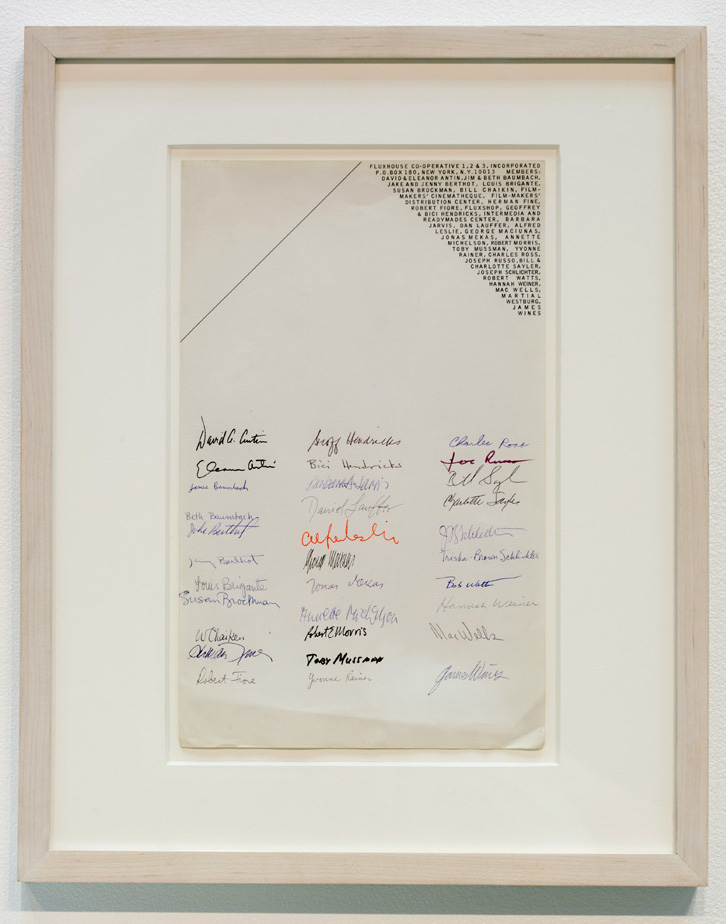 FLUXHOUSE CO-OPERATIVE 1, 2 & 3, INCORPORATED
P.O. BOX 180, NEW YORK, N.Y. 10013 MEMBERS:
DAVID & ELEANOR ANTIN, JIM & BETH BAUMBACH,
JAKE AND JENNY BERTHOT, LOUIS BRIGANTE,
SUSAN BROCKMAN, BILL CHAIKIN, FILM-
MAKERS' CINEMATHEQUE, FILM-MAKERS'
DISTRIBUTION CENTER, HERMAN FINE,
ROBERT FIORE, FLUXSHOP, GEOFFREY
& BICI HENDRICKS, INTERMEDIA AND
READYMADES CENTER, BARBARA
JARVIS, DAN LAUFFER, ALFRED
LESLIE, GEORGE MACIUNAS,
JONAS MEKAS, ANNETTE
MICHELSON, ROBERT MORRIS,
TOBY MUSSMAN, YVONNE
RAINER, CHARLES ROSS,
JOSEPH RUSSO, BILL &
CHARLOTTE SAYLER,
JOSEPH SCHLICHTER,
ROBERT WATTS,
HANNAH WEINER,
MAC WELLS,
MARTIAL
WESTBURG,
JAMES
WINES
David A. Antin
Eleanor Antin
Jamie Baumbach
Beth Baumbach
Jake Berthot
Jenny Berthot
Louis Brigante
Susan Brockman
W Chaiken
Robert Fiore
Geoff Hendricks
Bici Hendricks
Barbara Jarvis
Daniel Lauffer
Alfred Leslie
Jonas Mekas
Annette Michelson
Robert Morris
Toby Mussman
Yvonne Rainer
Charles Ross
Joe Russo
Bill Sayler
Charlotte Sayler
J Schlichter
Trisha Brown Schlichter
Bob Watts
Hannah Weiner
Mac Wells
James Wines